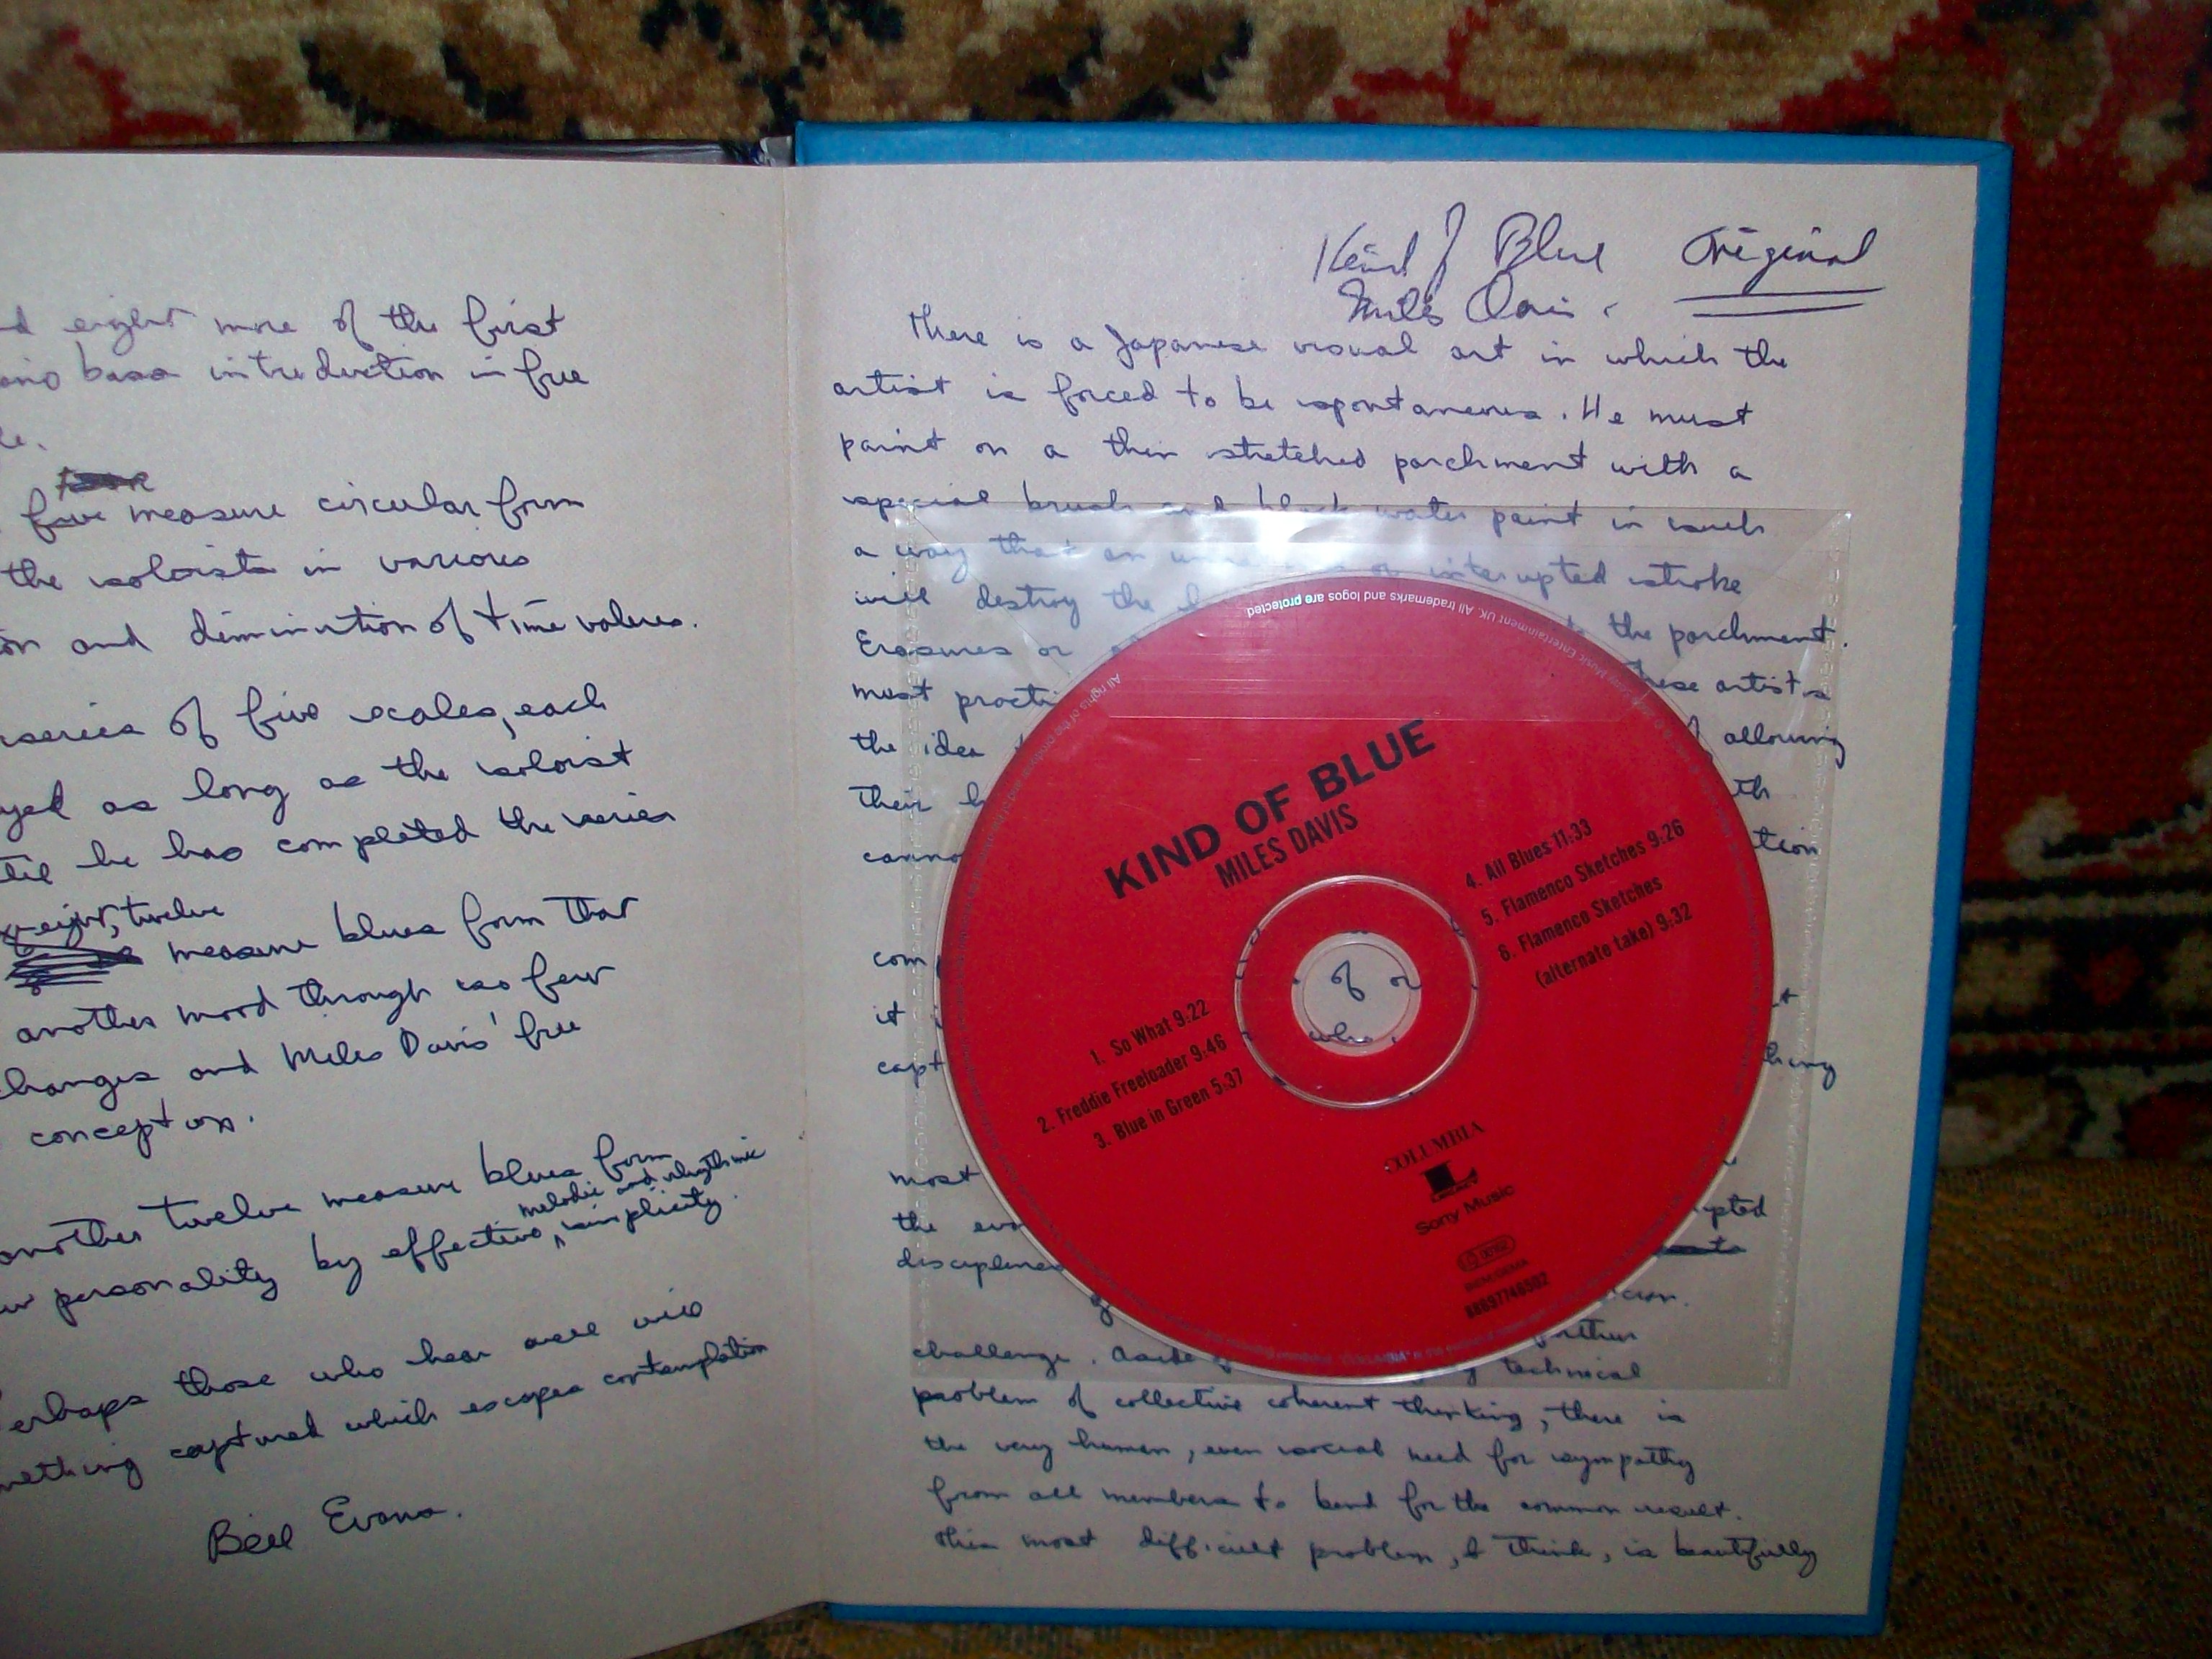 d eight more of the first
ano bass introduction in free
le.
five measure circular form
the soloists in various
on and diminution of time values.
series of five scales, each
yed as long as the soloist
til he has completed the series
eight, twelve
measure blues form that
another mood through its few
hanges and Miles Davis' free
conception.
another twelve measure blues form
melodic and rhythmic
personality by effective, simplicity.
erhaps those who hear well will
mething captured which escapes contemplation
Bill Evans.
Kind of Blue Original
Miles Davis.
There is a Japanese visual art in which the
artist is forced to be spontaneous. He must
paint on a thin stretched parchment with a
special brush and black water paint in such
a way that an or interupted stroke
will destroy the the parchment.
Erasures or
must practi hese artists
the idea allowing
their h th
canno tion
com
it t
capt hing
most
the evo pted
disciplines
further
challenge. Aside technical
problem of collective coherent thinking, there is
the very human, even social need for sympathy
from all members to bend for the common result.
This most difficult problem, I think, is beautifully
All trademarks and logos are protected
All rights of the
KIND OF BLUE
MILES DAVIS
1. So What 9:22
2. Freddie Freeloader 9:46
3. Blue in Green 5:37
4. All Blues 11:33
5. Flamenco Sketches 9:26
6. Flamenco Sketches
(alternate take) 9:32
of or
who
COLUMBIA
LEGACY
Sony Music
88697746502